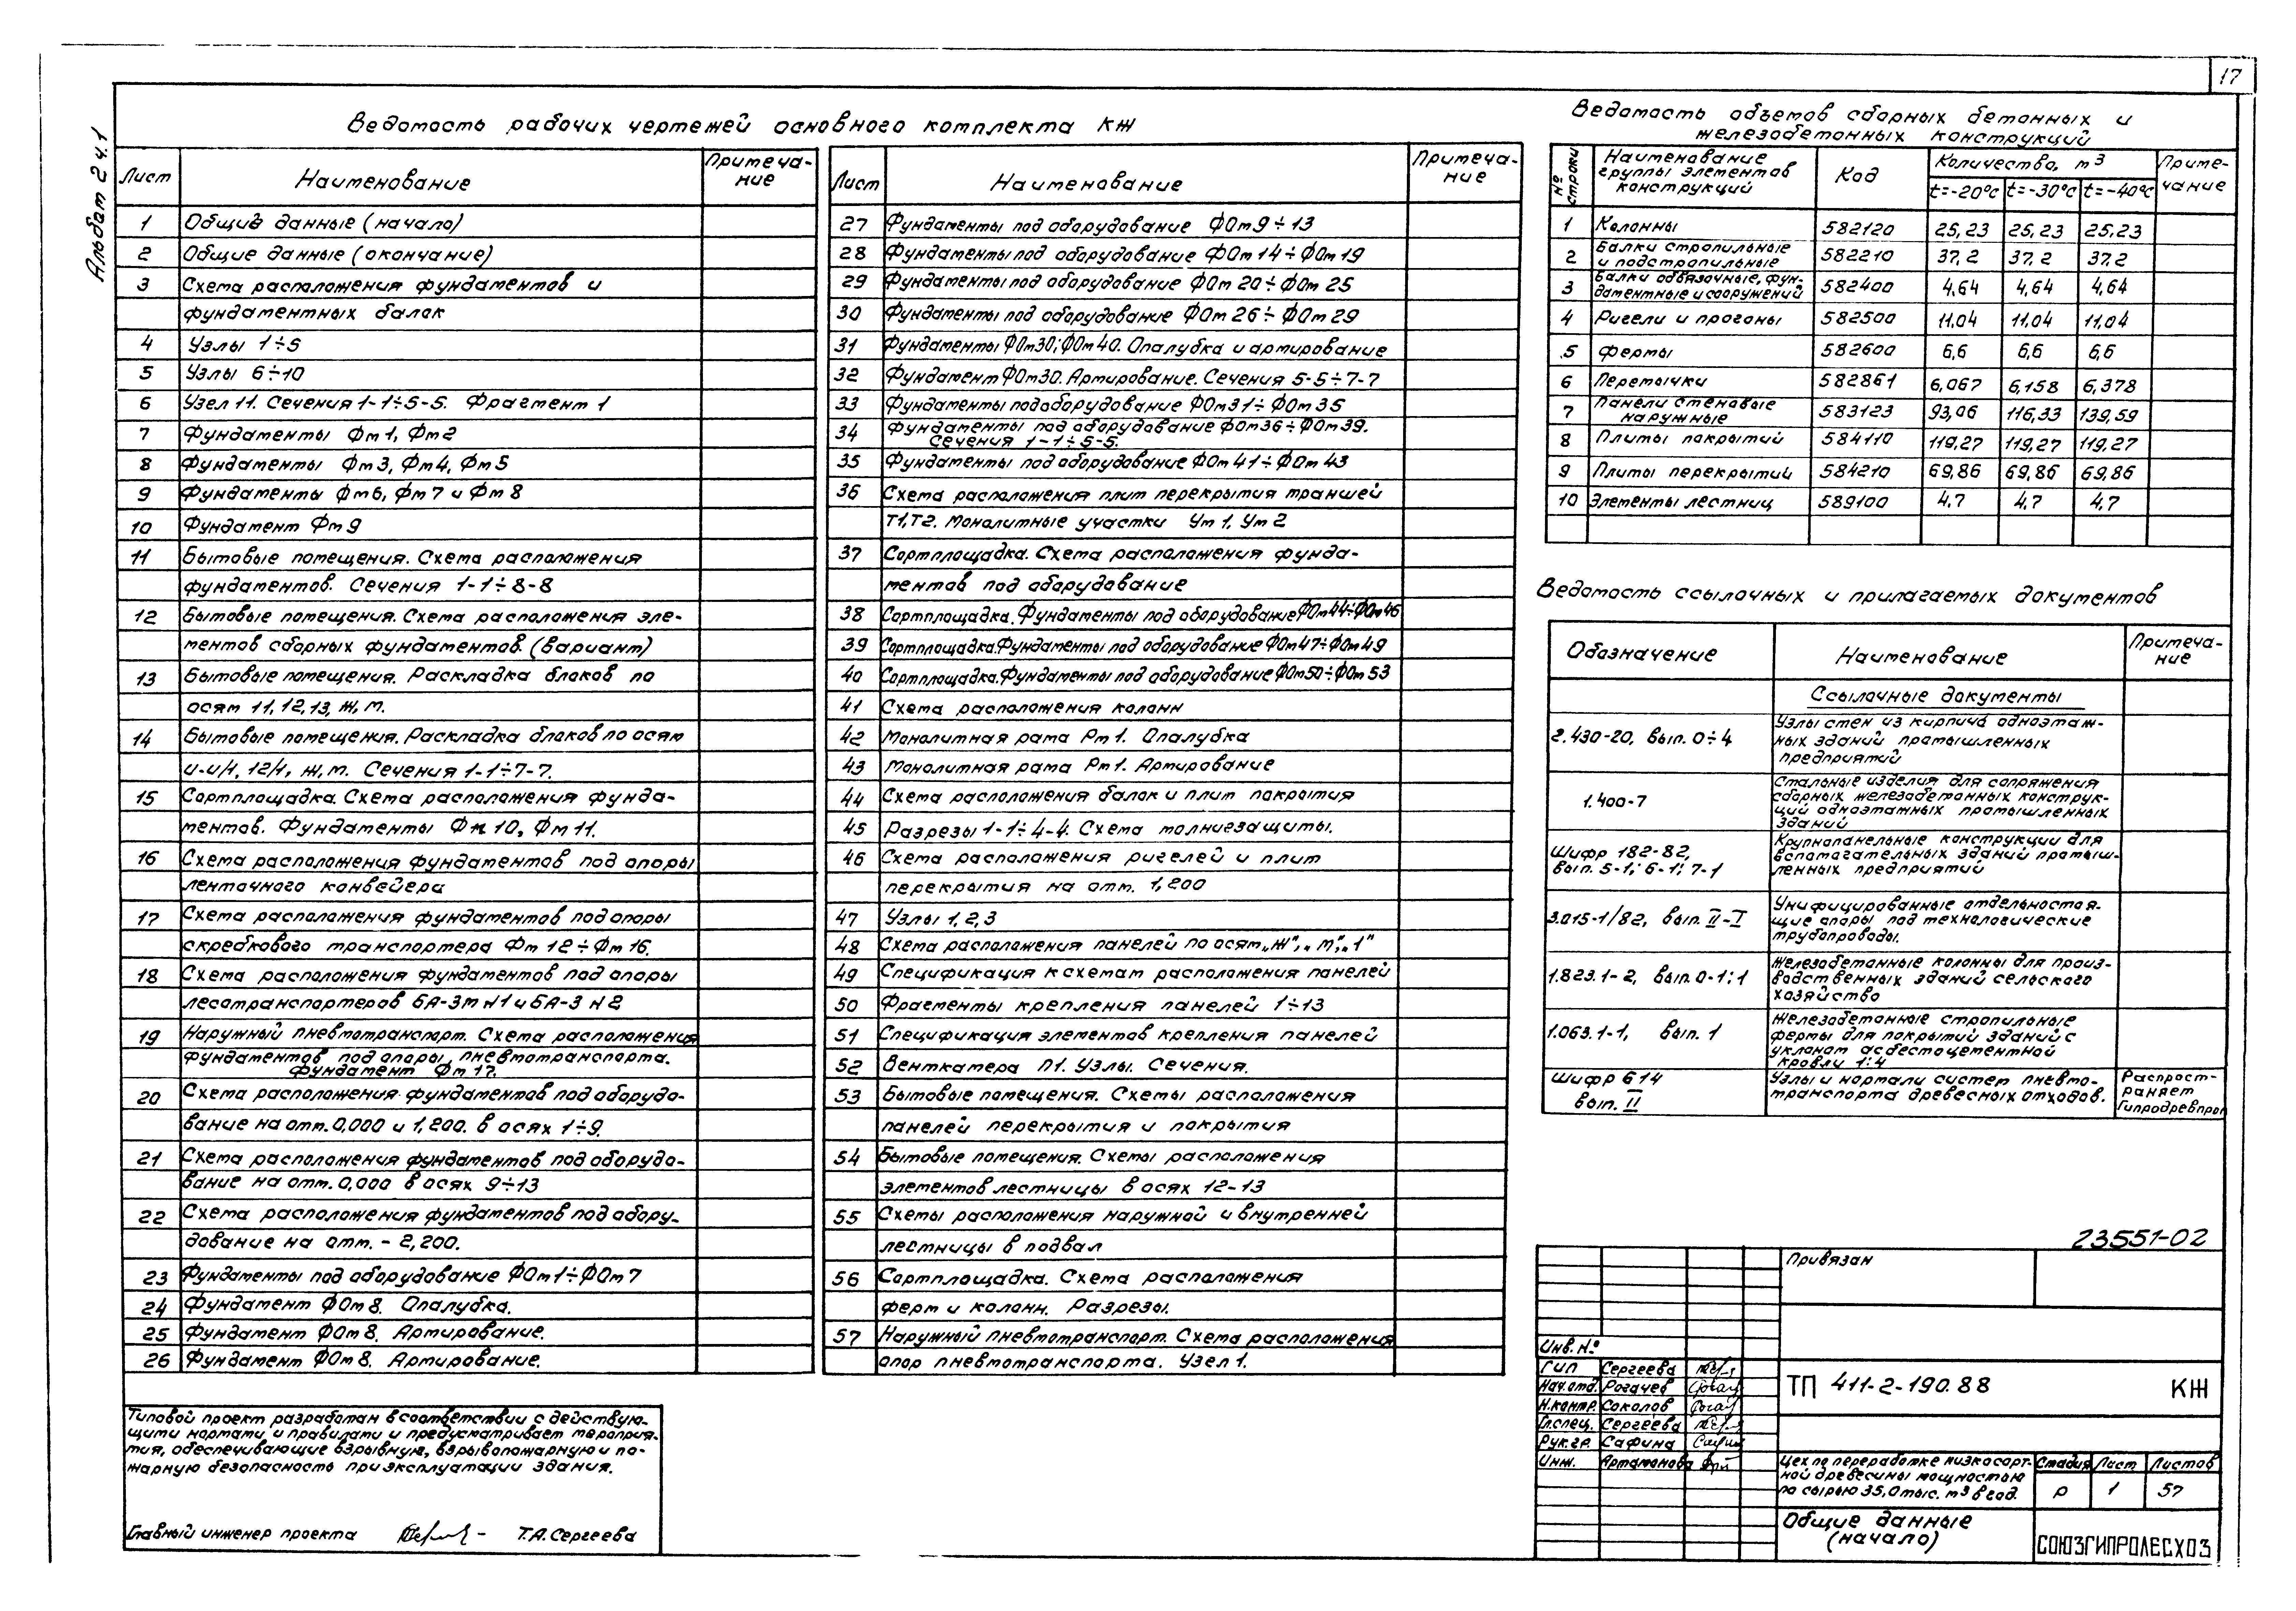 17
Альбом 2 ч.1
Ведомость рабочих чертежей основного комплекта КЖ
Лист Наименование Примеча-
ние
1 Общие данные (начало)
2 Общие данные (окончание)
3 Схема расположения фундаментов и
фундаментных балок
4 Узлы 1÷5
5 Узлы 6÷10
6 Узел 11. Сечения 1-1÷5-5. Фрагмент 1
7 Фундаменты Фм1, Фм2
8 Фундаменты Фм3, Фм4, Фм5
9 Фундаменты Фм6, Фм7 и Фм8
10 Фундамент Фм9
11 Бытовые помещения. Схема расположения
фундаментов. Сечения 1-1÷8-8
12 Бытовые помещения. Схема расположения эле-
ментов сборных фундаментов. (вариант)
13 Бытовые помещения. Раскладка блоков по
осям 11, 12, 13, Ж, М.
14 Бытовые помещения. Раскладка блоков по осям
и-и/1, 12/1, Ж, М. Сечения 1-1÷7-7.
15 Сортплощадка. Схема расположения фунда-
ментов. Фундаменты Фм 10, Фм 11.
16 Схема расположения фундаментов под опоры
ленточного конвейера
17 Схема расположения фундаментов под опоры
скребкового транспортера Фм 12÷Фм 16.
18 Схема расположения фундаментов под опоры
лесотранспортеров БА-3м н1 и БА-3 н2
19 Наружный пневмотранспорт. Схема расположения
фундаментов под опоры пневмотранспорта.
Фундамент Фм 17.
20 Схема расположения фундаментов под оборудо-
вание на отм. 0,000 и 1,200. в осях 1÷9.
21 Схема расположения фундаментов под оборудо-
вание на отм. 0,000 в осях 9÷13
22 Схема расположения фундаментов под обору-
дование на отм. - 2,200.
23 Фундаменты под оборудование ФОм1÷ФОм7
24 Фундамент ФОм 8. Опалубка.
25 Фундамент ФОм 8. Армирование.
26 Фундамент ФОм 8. Армирование.
Лист Наименование Примеча-
ние
27 Фундаменты под оборудование ФОм 9÷13
28 Фундаменты под оборудование ФОм 14÷ФОм 19
29 Фундаменты под оборудование ФОм 20÷ФОм 25
30 Фундаменты под оборудование ФОм 26÷ФОм 29
31 Фундаменты ФОм30; ФОм 40. Опалубка и армирование
32 Фундамент ФОм30. Армирование. Сечения 5-5÷7-7
33 Фундаменты под оборудование ФОм31÷ФОм35
34 Фундаменты под оборудование ФОм36÷ФОм39.
Сечения 1-1÷5-5.
35 Фундаменты под оборудование ФОм 41÷ФОм 43
36 Схема расположения плит перекрытия траншей
Т1, Т2. Монолитные участки Ум 1, Ум 2
37 Сортплощадка. Схема расположения фунда-
ментов под оборудование
38 Сортплощадка. Фундаменты под оборудование ФОм44÷ФОм46
39 Сортплощадка. Фундаменты под оборудование ФОм47÷ФОм49
40 Сортплощадка. Фундаменты под оборудование ФОм50÷ФОм53
41 Схема расположения колонн
42 Монолитная рама Рм1. Опалубка
43 Монолитная рама Рм1. Армирование
44 Схема расположения балок и плит покрытия
45 Разрезы 1-1÷4-4. Схема молниезащиты.
46 Схема расположения ригелей и плит
перекрытия на отм. 1,200
47 Узлы 1, 2, 3
48 Схема расположения панелей по осям „Ж", „М", „1"
49 Спецификация к схемам расположения панелей
50 Фрагменты крепления панелей 1÷13
51 Спецификация элементов крепления панелей
52 Венткамера П1. Узлы. Сечения.
53 Бытовые помещения. Схемы расположения
панелей перекрытия и покрытия
54 Бытовые помещения. Схемы расположения
элементов лестницы в осях 12-13
55 Схемы расположения наружной и внутренней
лестницы в подвал
56 Сортплощадка. Схема расположения
ферм и колонн. Разрезы.
57 Наружный пневмотранспорт. Схема расположения
опор пневмотранспорта. Узел 1.
Ведомость объемов сборных бетонных и
железобетонных конструкций
№ строки Наименование группы элементов конструкций Код Количество, м3 Приме-
чание
t=-20°с t=-30°с t=-40°с
1 Колонны 582120 25,23 25,23 25,23
2 Балки стропильные
и подстропильные 582210 37,2 37,2 37,2
3 Балки обвязочные, фун-
даментные и сооружений 582400 4,64 4,64 4,64
4 Ригели и прогоны 582500 11,04 11,04 11,04
5 Фермы 582600 6,6 6,6 6,6
6 Перемычки 582861 6,067 6,158 6,378
7 Панели стеновые
наружные 583123 93,06 116,33 139,59
8 Плиты покрытий 584110 119,27 119,27 119,27
9 Плиты перекрытий 584210 69,86 69,86 69,86
10 Элементы лестниц 589100 4,7 4,7 4,7
Ведомость ссылочных и прилагаемых документов
Обозначение Наименование Примеча-
ние
Ссылочные документы
2.430-20, вып. 0÷4 Узлы стен из кирпича одноэтаж-
ных зданий промышленных
предприятий
1.400-7 Стальные изделия для сопряжения
сборных железобетонных конструк-
ций одноэтажных промышленных
зданий
Шифр 182-82,
вып. 5-1; 6-1; 7-1 Крупнопанельные конструкции для
вспомогательных зданий промыш-
ленных предприятий
3.015-1/82, вып. II-I Унифицированные отдельностоя-
щие опоры под технологические
трубопроводы.
1.823.1-2, вып. 0-1;1 Железобетонные колонны для произ-
водственных зданий сельского
хозяйство
1.063.1-1, вып. 1 Железобетонные стропильные
фермы для покрытий зданий с
уклоном асбестоцементной
кровли 1:4
Шифр 614
вып. II Узлы и нормали систем пневмо-
транспорта древесных отходов. Распрост-
раняет
Гипродревпром
23551-02
Привязан
Инв. №
ГИП Сергеева
Нач.отд. Рогачев
Н.контр. Соколов
Гл.спец. Сергеева
Рук.гр. Сафина
Инж. Артамонова
ТП 411-2-190.88 КЖ
Цех по переработке низкосорт-
ной древесины мощностью
по сырью 35,0 тыс. м3 в год.
Стадия Лист Листов
Р 1 57
Общие данные
(начало)
СОЮЗГИПРОЛЕСХОЗ
Типовой проект разработан в соответствии с действую-
щими нормами и правилами и предусматривает мероприя-
тия, обеспечивающие взрывную, взрывопожарную и по-
жарную безопасность при эксплуатации здания.
Главный инженер проекта Т.А. Сергеева